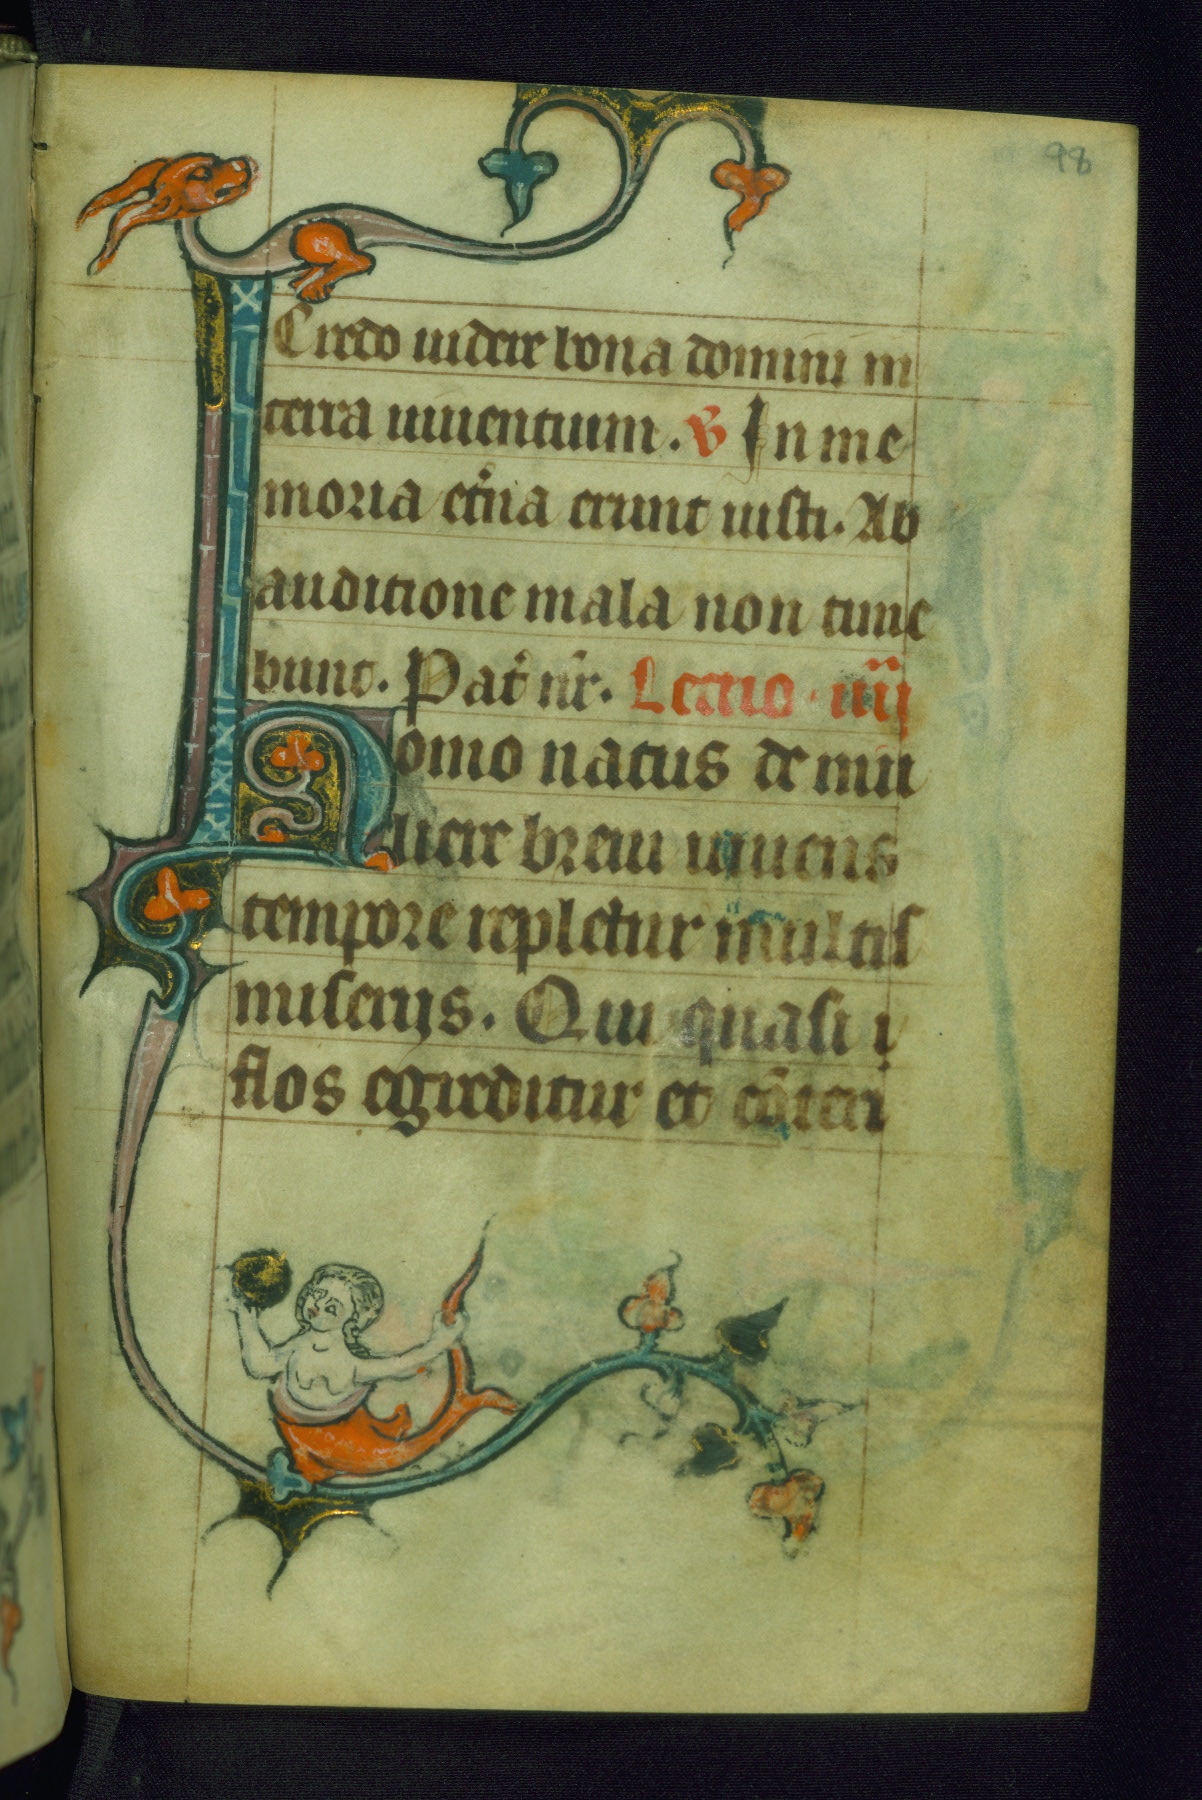 98
Credo uidere bona domini in
terra uiuentium. ℣ In me
moria et̄na erunt iusti. Ab
auditione mala non time
bunt. Pat̄ nr̄. Lectio. iiij
Homo natus de mu
liere breui uiuens
tempore repletur multis
miserijs. Qui quasi
flos egreditur et cōteri